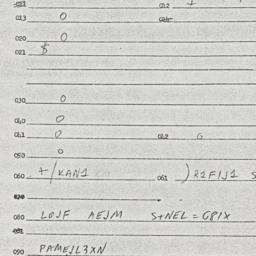 013 0
020 0
021 $
030 0
040 0
041 0 042 G
050 0
060 +/KAN1 061 )R1FIJ1 S
080 LOJF AEJM S+NEL=G8IX
090 PAMEJL3XN